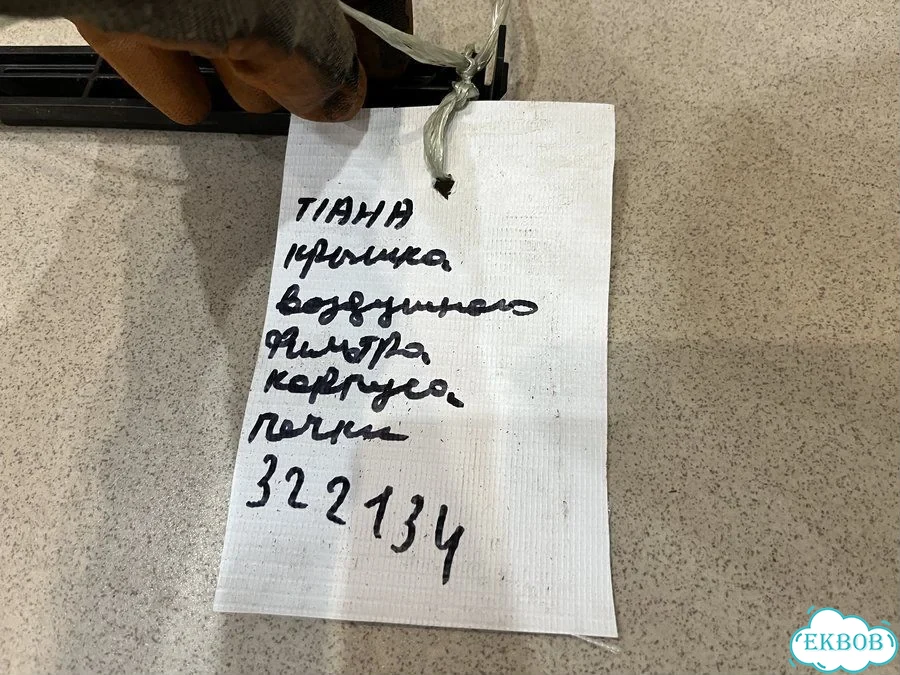 ТІАНА
крышка
воздушного
фильтра
корпуса
печки
322134
EKBOB